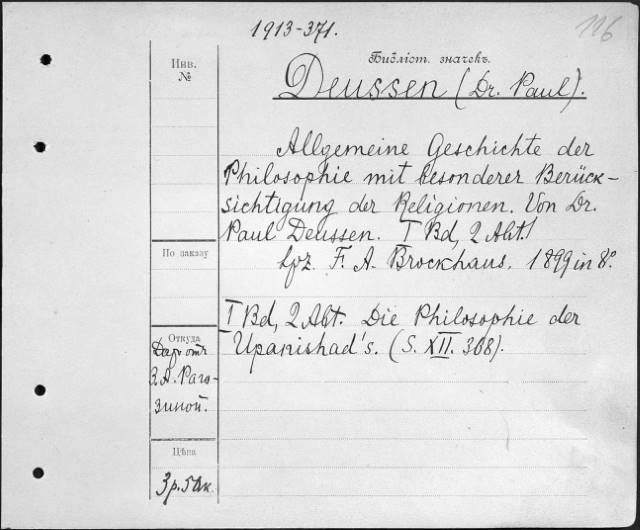 1913-371.
116
Инв.
№
Библіот. значекъ.
Deussen (Dr. Paul).
Allgemeine Geschichte der
Philosophie mit besonderer Berück-
sichtigung der Religionen. Von Dr.
Paul Deussen. I Bd, 2 Abt.
Lpz. F. A. Brockhaus. 1899 in 8º.
I Bd, 2 Abt. Die Philosophie der
Upanishad's. (S. XII. 368).
По заказу
Откуда
Дар отъ
З.А. Раго-
зиной.
Цѣна
3 р. 50 к.